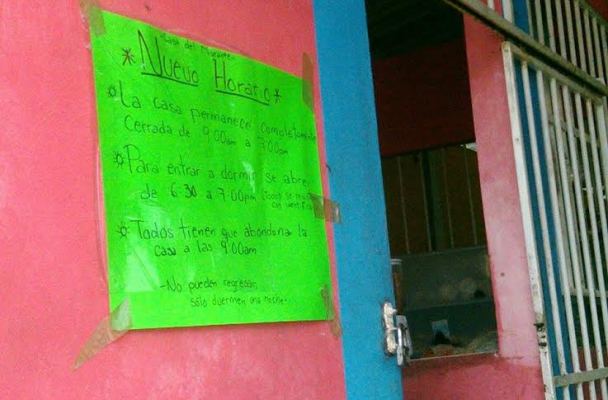 -Casa del Migrante-
*Nuevo Horario*
La casa permanece completamente
Cerrada de 9:00am a 7:00pm
Para entrar a dormir se abre
de 6:30 a 7:00pm
Todos tienen que abandonar la
casa a las 9:00am
-No pueden regresar,
sólo duermen una noche-